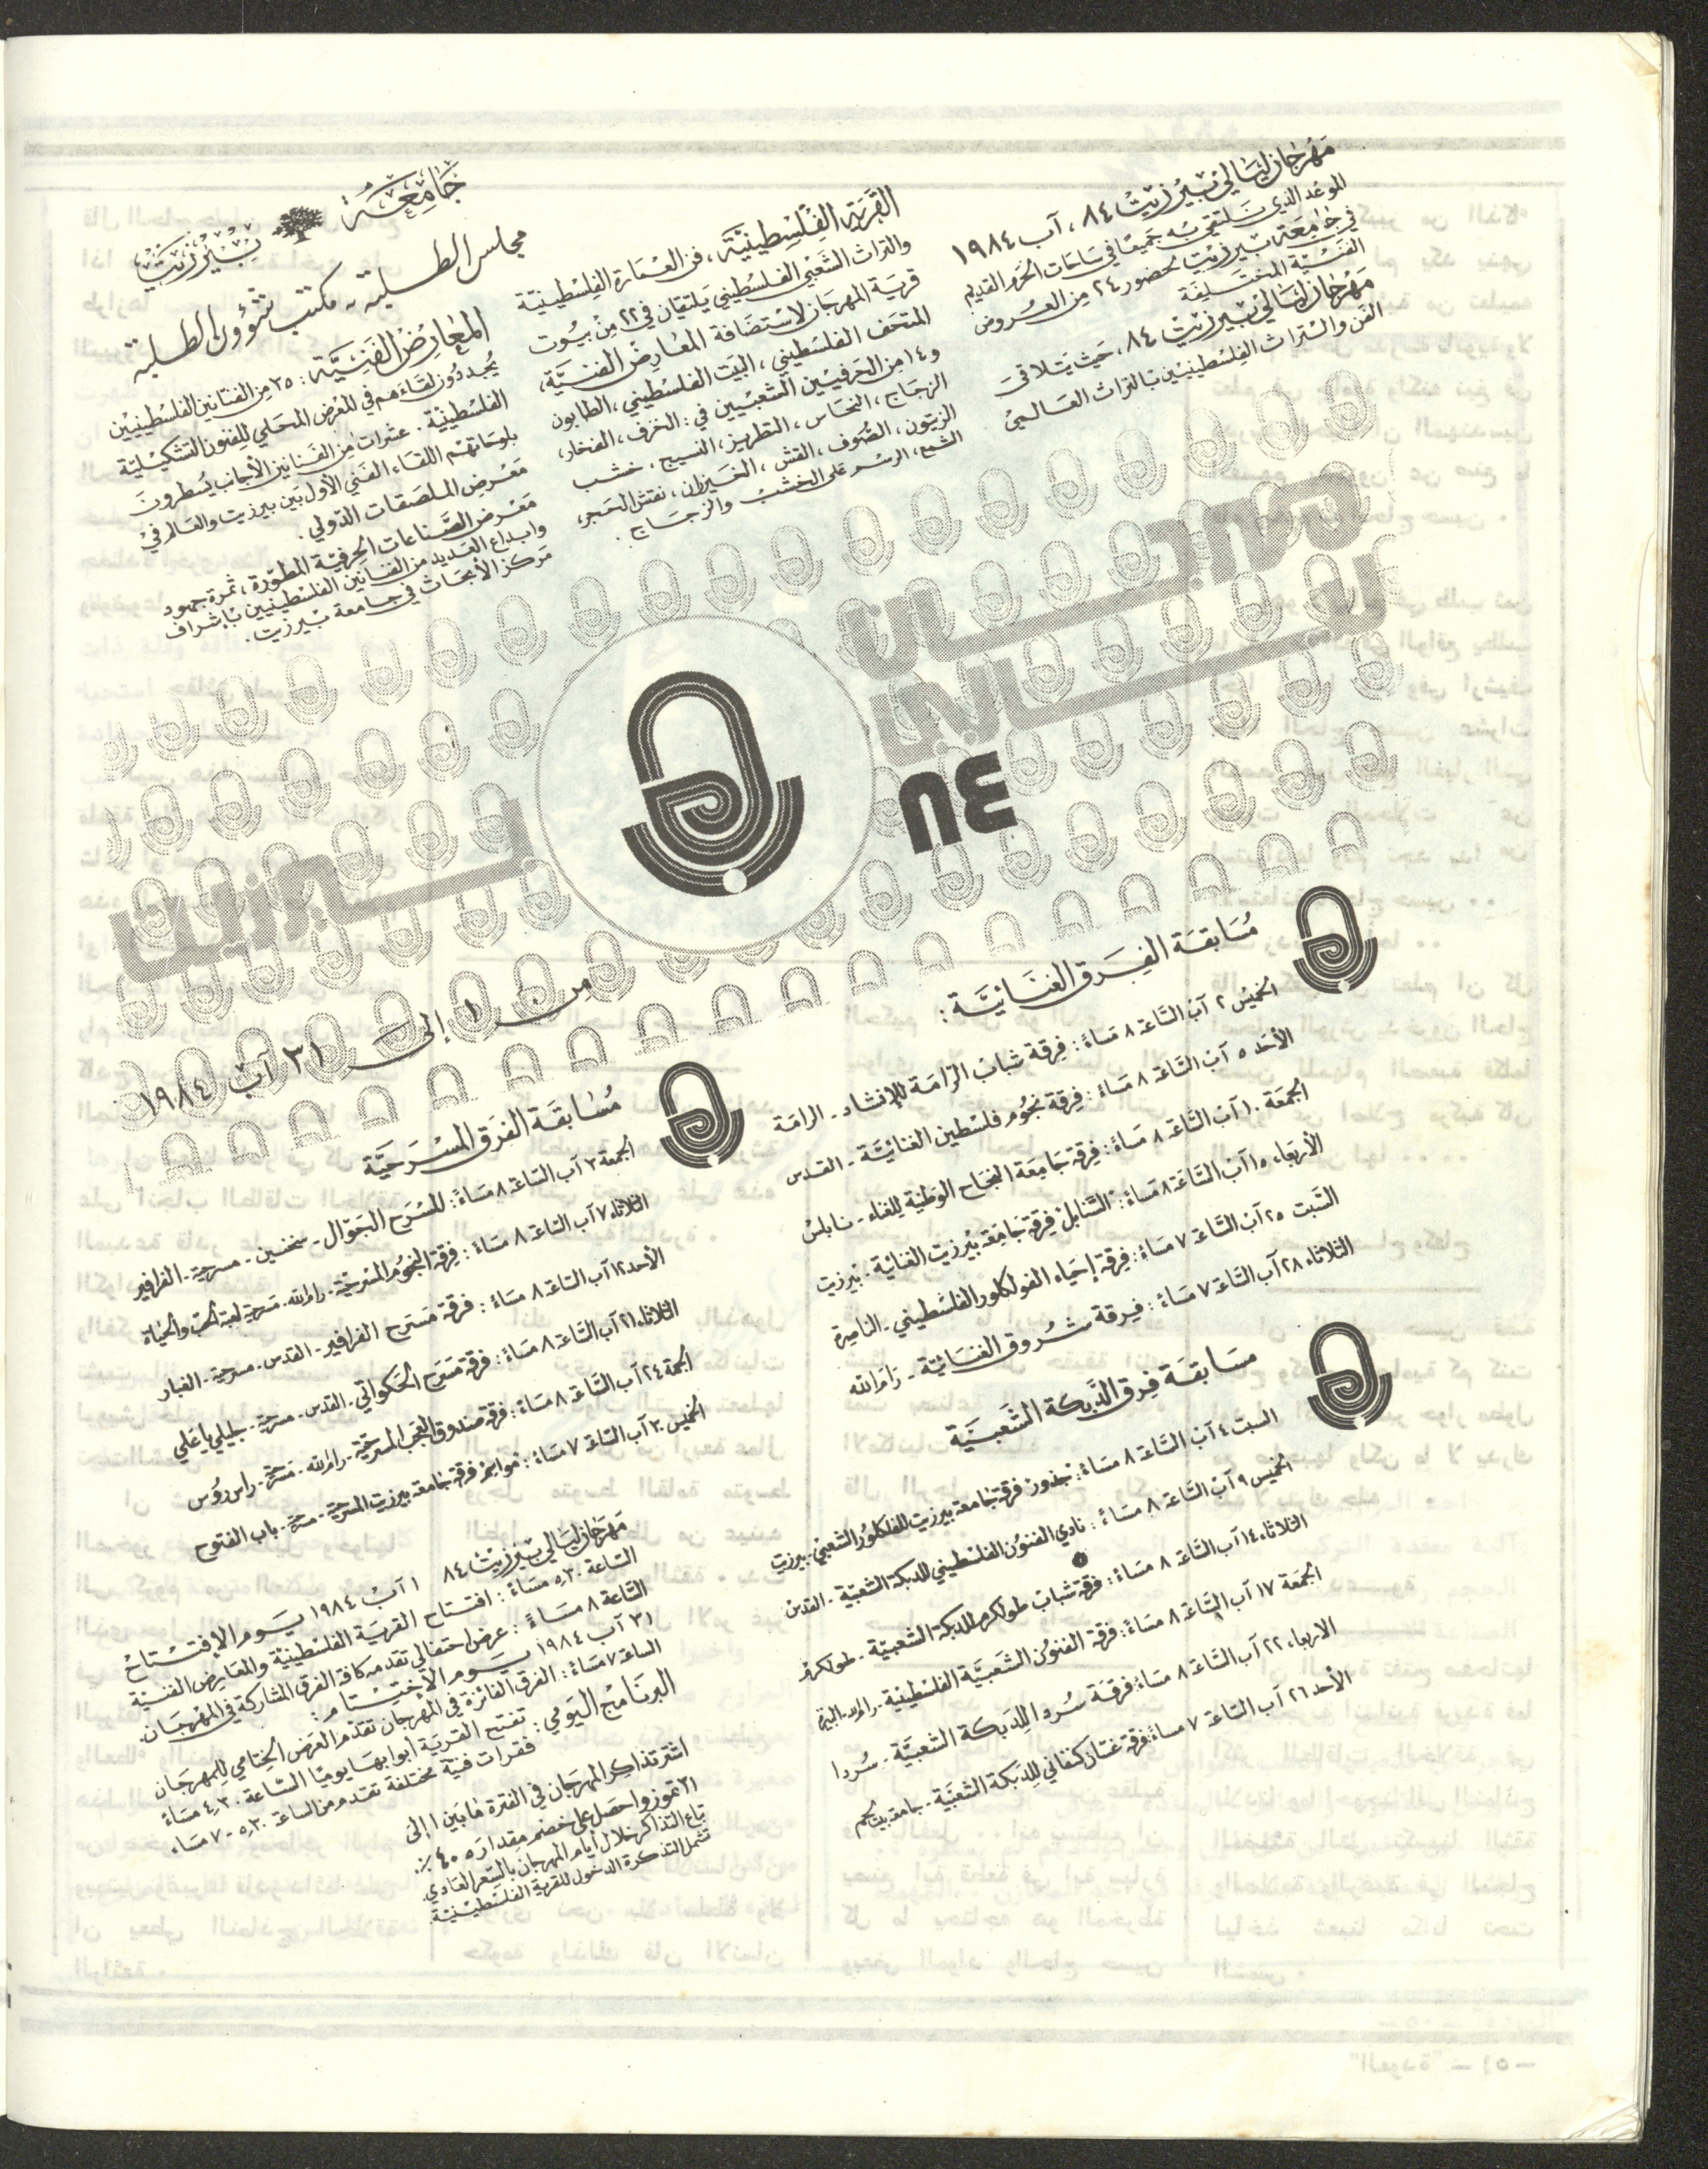 جامعة بيرزيت
مجلس الطلبة - مكتب شؤون الطلبة
مهرجان ليالي بيرزيت ٨٤، آب ١٩٨٤
الموعد الذي نلتقي به جميعًا في ساحات الحرم القديم
في جامعة بيرزيت لحضور ٢٤ من العروض
الفنية المختلفة
مهرجان ليالي بيرزيت ٨٤، حيث يتلاقى
الفن والتراث الفلسطينيين بالتراث العالمي
القرية الفلسطينية، فن العمارة الفلسطينية
والتراث الشعبي الفلسطيني يلتقيان في ٢٢ من بيوت
قرية المهرجان لاستضافة المعارض الفنية،
المتحف الفلسطيني، البيت الفلسطيني، الطابون
و١٤ من الحرفيين الشعبيين في: الخزف، الفخار،
الزجاج، النحاس، التطريز، النسيج، خشب
الزيتون، الصوف، القش، الخيزران، نقش الحجر،
الشمع، الرسم على الخشب والزجاج.
المعارض الفنية: ٣٥ من الفنانين الفلسطينيين
يجددون لقاءهم في المعرض المحلي للفنون التشكيلية
الفلسطينية. عشرات من الفنانين الأجانب يسطرون
بلوحاتهم اللقاء الفني الأول بين بيرزيت والعالم في
معرض الملصقات الدولي.
معرض الصناعات الحرفية المطورة، ثمرة جهود
وابداع العديد من الفنانين الفلسطينيين بإشراف
مركز الأبحاث في جامعة بيرزيت.
مهرجان
ليالي
٨٤
بيرزيت
من ١ إلى ٣١ آب ١٩٨٤
مسابقة الفرق الغنائية:
الخميس ٢ آب الساعة ٨ مساءً: فرقة شباب الرامة للإنشاد - الرامة
الأحد ٥ آب الساعة ٨ مساءً: فرقة نجوم فلسطين الغنائية - القدس
الجمعة ١٠ آب الساعة ٨ مساءً: فرقة جامعة النجاح الوطنية للغناء - نابلس
الأربعاء ١٥ آب الساعة ٨ مساءً: "السنابل" فرقة جامعة بيرزيت الغنائية - بيرزيت
السبت ٢٥ آب الساعة ٧ مساءً: فرقة إحياء الفولكلور الفلسطيني - الناصرة
الثلاثاء ٢٨ آب الساعة ٧ مساءً: فرقة شروق الغنائية - رام الله
مسابقة فرق الدبكة الشعبية
السبت ٤ آب الساعة ٨ مساءً: "جذور" فرقة جامعة بيرزيت للفلكلور الشعبي - بيرزيت
الخميس ٩ آب الساعة ٨ مساءً: نادي الفنون الفلسطيني للدبكة الشعبية - القدس
الثلاثاء ١٤ آب الساعة ٨ مساءً: فرقة شباب طولكرم للدبكة الشعبية - طولكرم
الجمعة ١٧ آب الساعة ٨ مساءً: فرقة الفنون الشعبية الفلسطينية - رام الله - البيرة
الاربعاء ٢٢ آب الساعة ٨ مساءً: فرقة سردا للدبكة الشعبية - سردا
الأحد ٢٦ آب الساعة ٧ مساءً: فرقة غسان كنفاني للدبكة الشعبية - جامعة بيت لحم
مسابقة الفرق المسرحية
الجمعة ٣ آب الساعة ٨ مساءً: المسرح الجوال - سخنين - مسرحية - الفرافير
الثلاثاء ٧ آب الساعة ٨ مساءً: فرقة النجوم المسرحية - رام الله - مسرحية لعبة الحب والحياة
الأحد ١٢ آب الساعة ٨ مساءً: فرقة مسرح الفرافير - القدس - مسرحية - الغبار
الثلاثاء ٢١ آب الساعة ٨ مساءً: فرقة مسرح الحكواتي - القدس - مسرحية - جليلي يا علي
الجمعة ٢٤ آب الساعة ٨ مساءً: فرقة صندوق العجب المسرحية - رام الله - مسرحية - راس روس
الخميس ٣٠ آب الساعة ٧ مساءً: فرقة جامعة بيرزيت المسرحية - مسرحية - باب الفتوح
مهرجان ليالي بيرزيت ٨٤
١ آب ١٩٨٤ يوم الإفتتاح
الساعة ٥,٣٠ مساءً: افتتاح القرية الفلسطينية والمعارض الفنية
الساعة ٨ مساءً: عرض احتفالي تقدمه كافة الفرق المشاركة في المهرجان.
٣١ آب ١٩٨٤ يوم الأختتام:
الساعة ٧ مساءً: الفرق الفائزة في المهرجان تقدم العرض الختامي للمهرجان
البرنامج اليومي: تفتح القرية أبوابها يوميًا الساعة ٤,٣٠ مساءً
فقرات فنية مختلفة تقدم من الساعة ٥,٣٠ - ٧ مساء.
اشتر تذاكر المهرجان في الفترة ما بين ١ إلى
٣١ تموز واحصل على خصم مقداره ٤٠٪.
تباع التذاكر خلال أيام المهرجان بالسعر العادي.
تشمل التذكرة الدخول للقرية الفلسطينية.